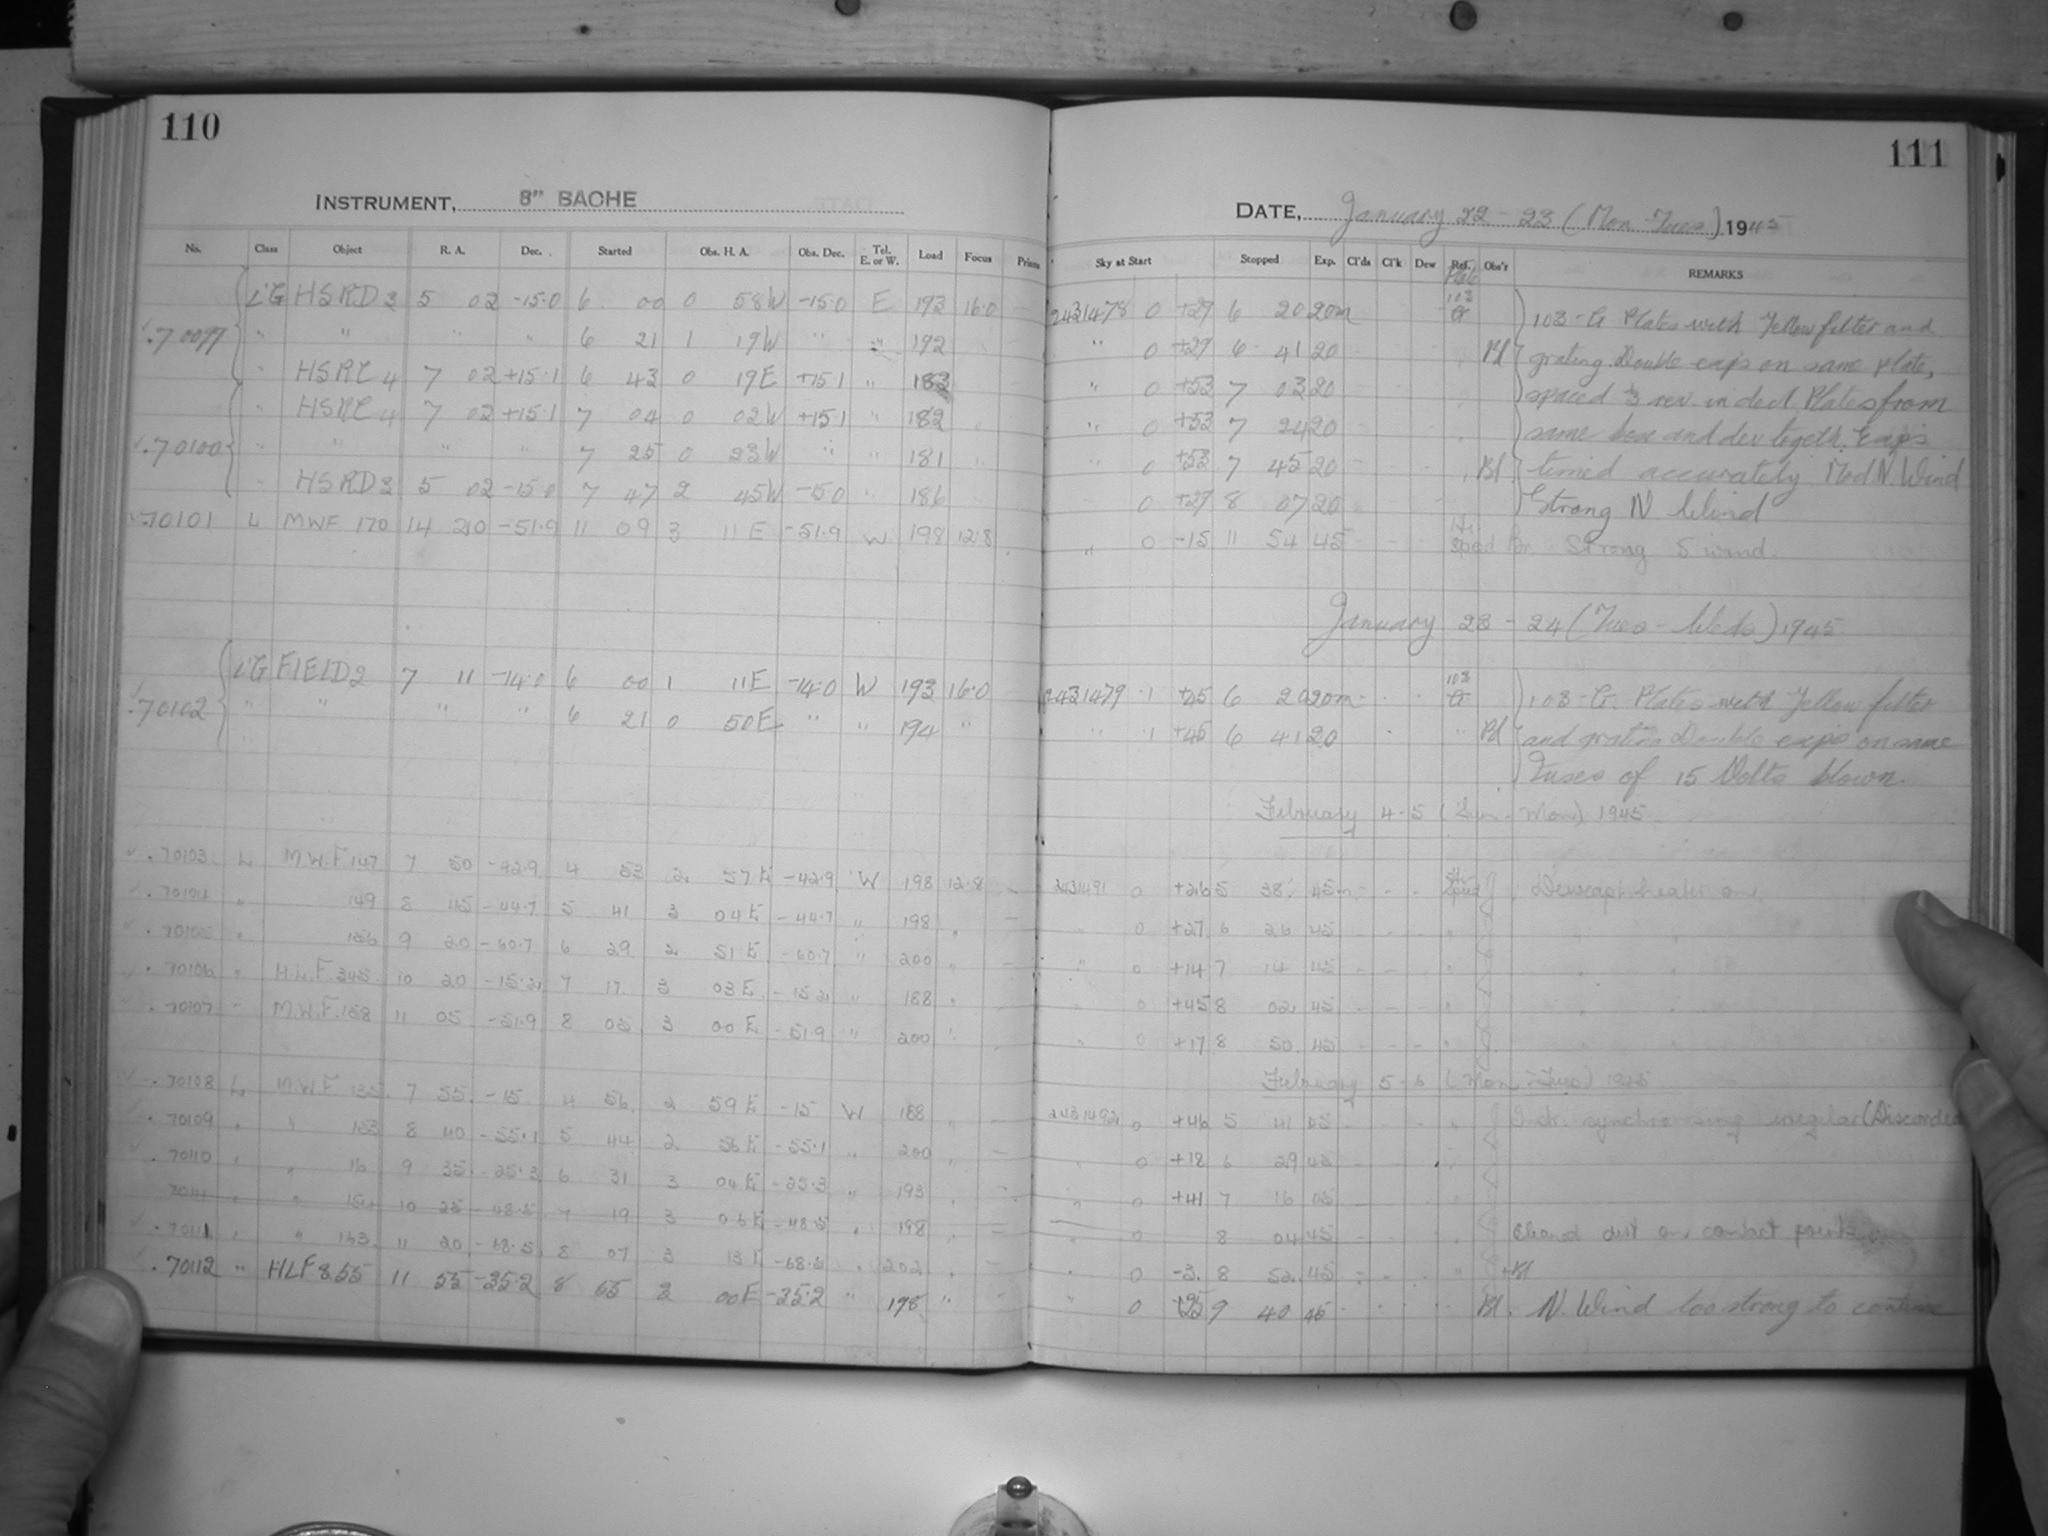 110
INSTRUMENT, 8" BACHE
No. Class Object R. A. Dec. Started Obs. H. A. Obs. Dec. Tel. E. or W. Load Focus Prism
L'G HSRD3 5 02 -15.0 6 00 0 58W -15.0 E 193 16.0
.70099 " " " " 6 21 1 19W " " 192
" HSRC4 7 02 +15.1 6 43 0 19E +15.1 " 183
" HSRC4 7 02 +15.1 7 04 0 02W +15.1 " 182
.70100 " " " " 7 25 0 23W " " 181
" HSRD3 5 02 -15.0 7 47 2 45W -15.0 " 186
.70101 L MWF 170 14 20 -51.9 11 09 3 11E -51.9 W 198 12.8
L'G FIELD2 7 11 -14.0 6 00 1 11E -14.0 W 193 16.0
.70102 " " " " 6 21 0 50E " " 194 "
.70103 L M.W.F.147 7 50 -42.9 4 53 2 57E -42.9 W 198 12.8 -
.70104 " 149 8 45 -44.7 5 41 3 04E -44.7 " 198 " -
.70105 " 156 9 20 -60.7 6 29 2 51E -60.7 " 200 " -
.70106 " H.L.F.345 10 20 -15.2 7 17 3 03E -15.2 " 188 "
.70107 " M.W.F.158 11 05 -51.9 8 05 3 00E -51.9 " 200 "
.70108 L M.W.F. 7 55 -15 4 56 2 59E -15 W 188 " -
.70109 " " 153 8 40 -55.1 5 44 2 56E -55.1 " 200 " -
.70110 " " 16 9 35 -25.3 6 31 3 04E -25.3 " 193 " -
" " 154 10 25 -48.5 7 19 3 06E -48.5 " 198 " -
.70111 " " 163 11 20 -68.5 8 07 3 13E -68.5 " 202 " -
.70112 " HLF 355 11 55 -35.2 8 55 3 00E -35.2 " 198 " "
111
DATE, January 22 - 23 (Mon-Tues) 1945
Sky at Start Stopped Exp. Cl'ds Cl'k Dew Ref. Obs'r REMARKS
Plate
2431478 0 +29 6 20 20m 103 G 103-G Plates with Yellow filter and
" 0 +29 6 41 20 Bl grating. Double exps on same plate,
" 0 +53 7 03 20 spaced 3 rev. in decl. Plates from
" 0 +53 7 24 20 same box and dev. togeth. Exps
" 0 +53 7 45 20 Bl timed accurately. Mod N. Wind
0 +29 8 07 20 Strong N Wind
" 0 -15 11 54 45 - - - Br. Strong S wind.
January 23 - 24 (Tues - Weds) 1945
2431479 1 +45 6 20 20m 103 G 103-G. Plates with Yellow filter
" 1 +45 6 41 20 " Bl and grating Double exps on same
Fuses of 15 Volts blown.
February 4-5 (Sun-Mon) 1945
2431491 0 +26 5 38 45m - - - Dewcap heater on.
" 0 +27 6 26 45 - - - "
" 0 +14 7 14 45 - - - "
" 0 +45 8 02 45 - - - "
" 0 +17 8 50 45 - - - "
February 5-6 (Mon-Tues) 1945
2431492 0 +46 5 41 45 - - - " synchronising irregular (Discorded
" 0 +18 6 29 45 - "
" 0 +41 7 16 45 - "
" 0 8 04 45 - - - " Cleaned dirt on contact points
" 0 -3 8 52 45 - - - " Bl
" 0 +25 9 40 45 Bl. N. Wind too strong to continue